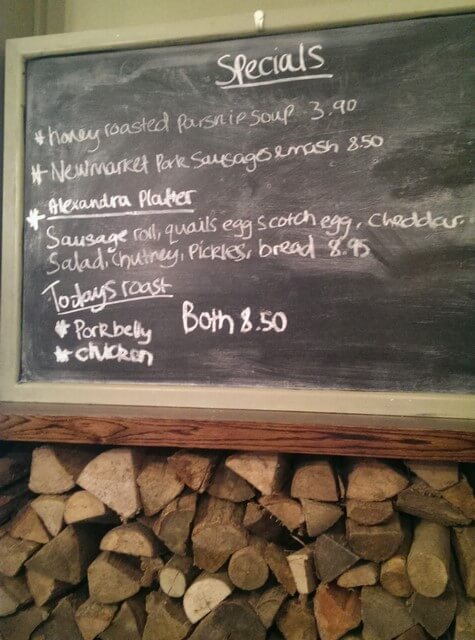 Specials
* honey roasted Parsnip soup 3.90
* Newmarket Pork Sausages & mash 8.50
* Alexandra Platter
Sausage roll, quails egg scotch egg, Cheddar
Salad, chutney, Pickles, bread 8.95
Todays roast
* Pork belly
Both 8.50
* chicken